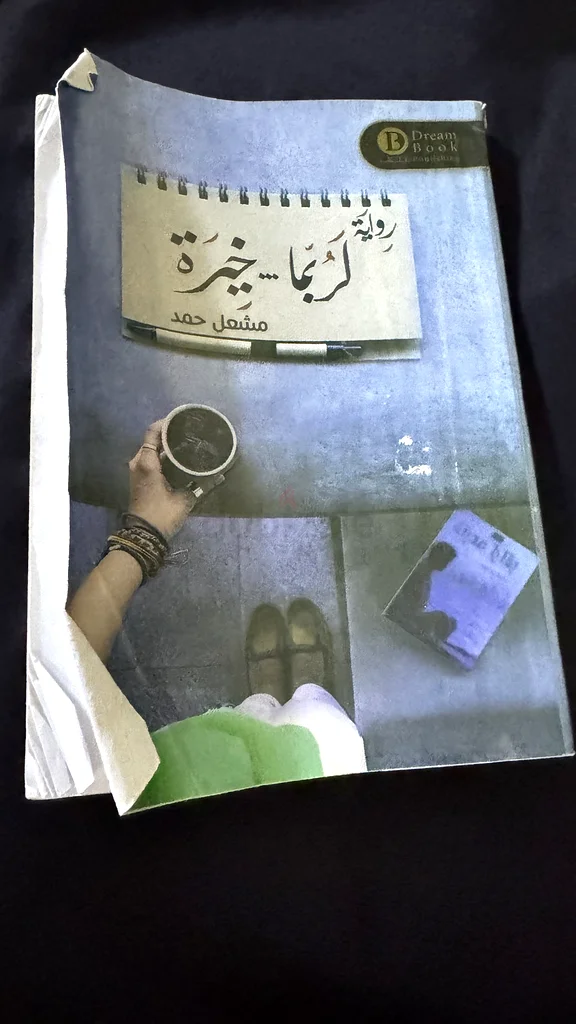 Dream
Book
Publishing
رِوايَة
لَرُبَّما ... خِيَرَة
مشعل حمد